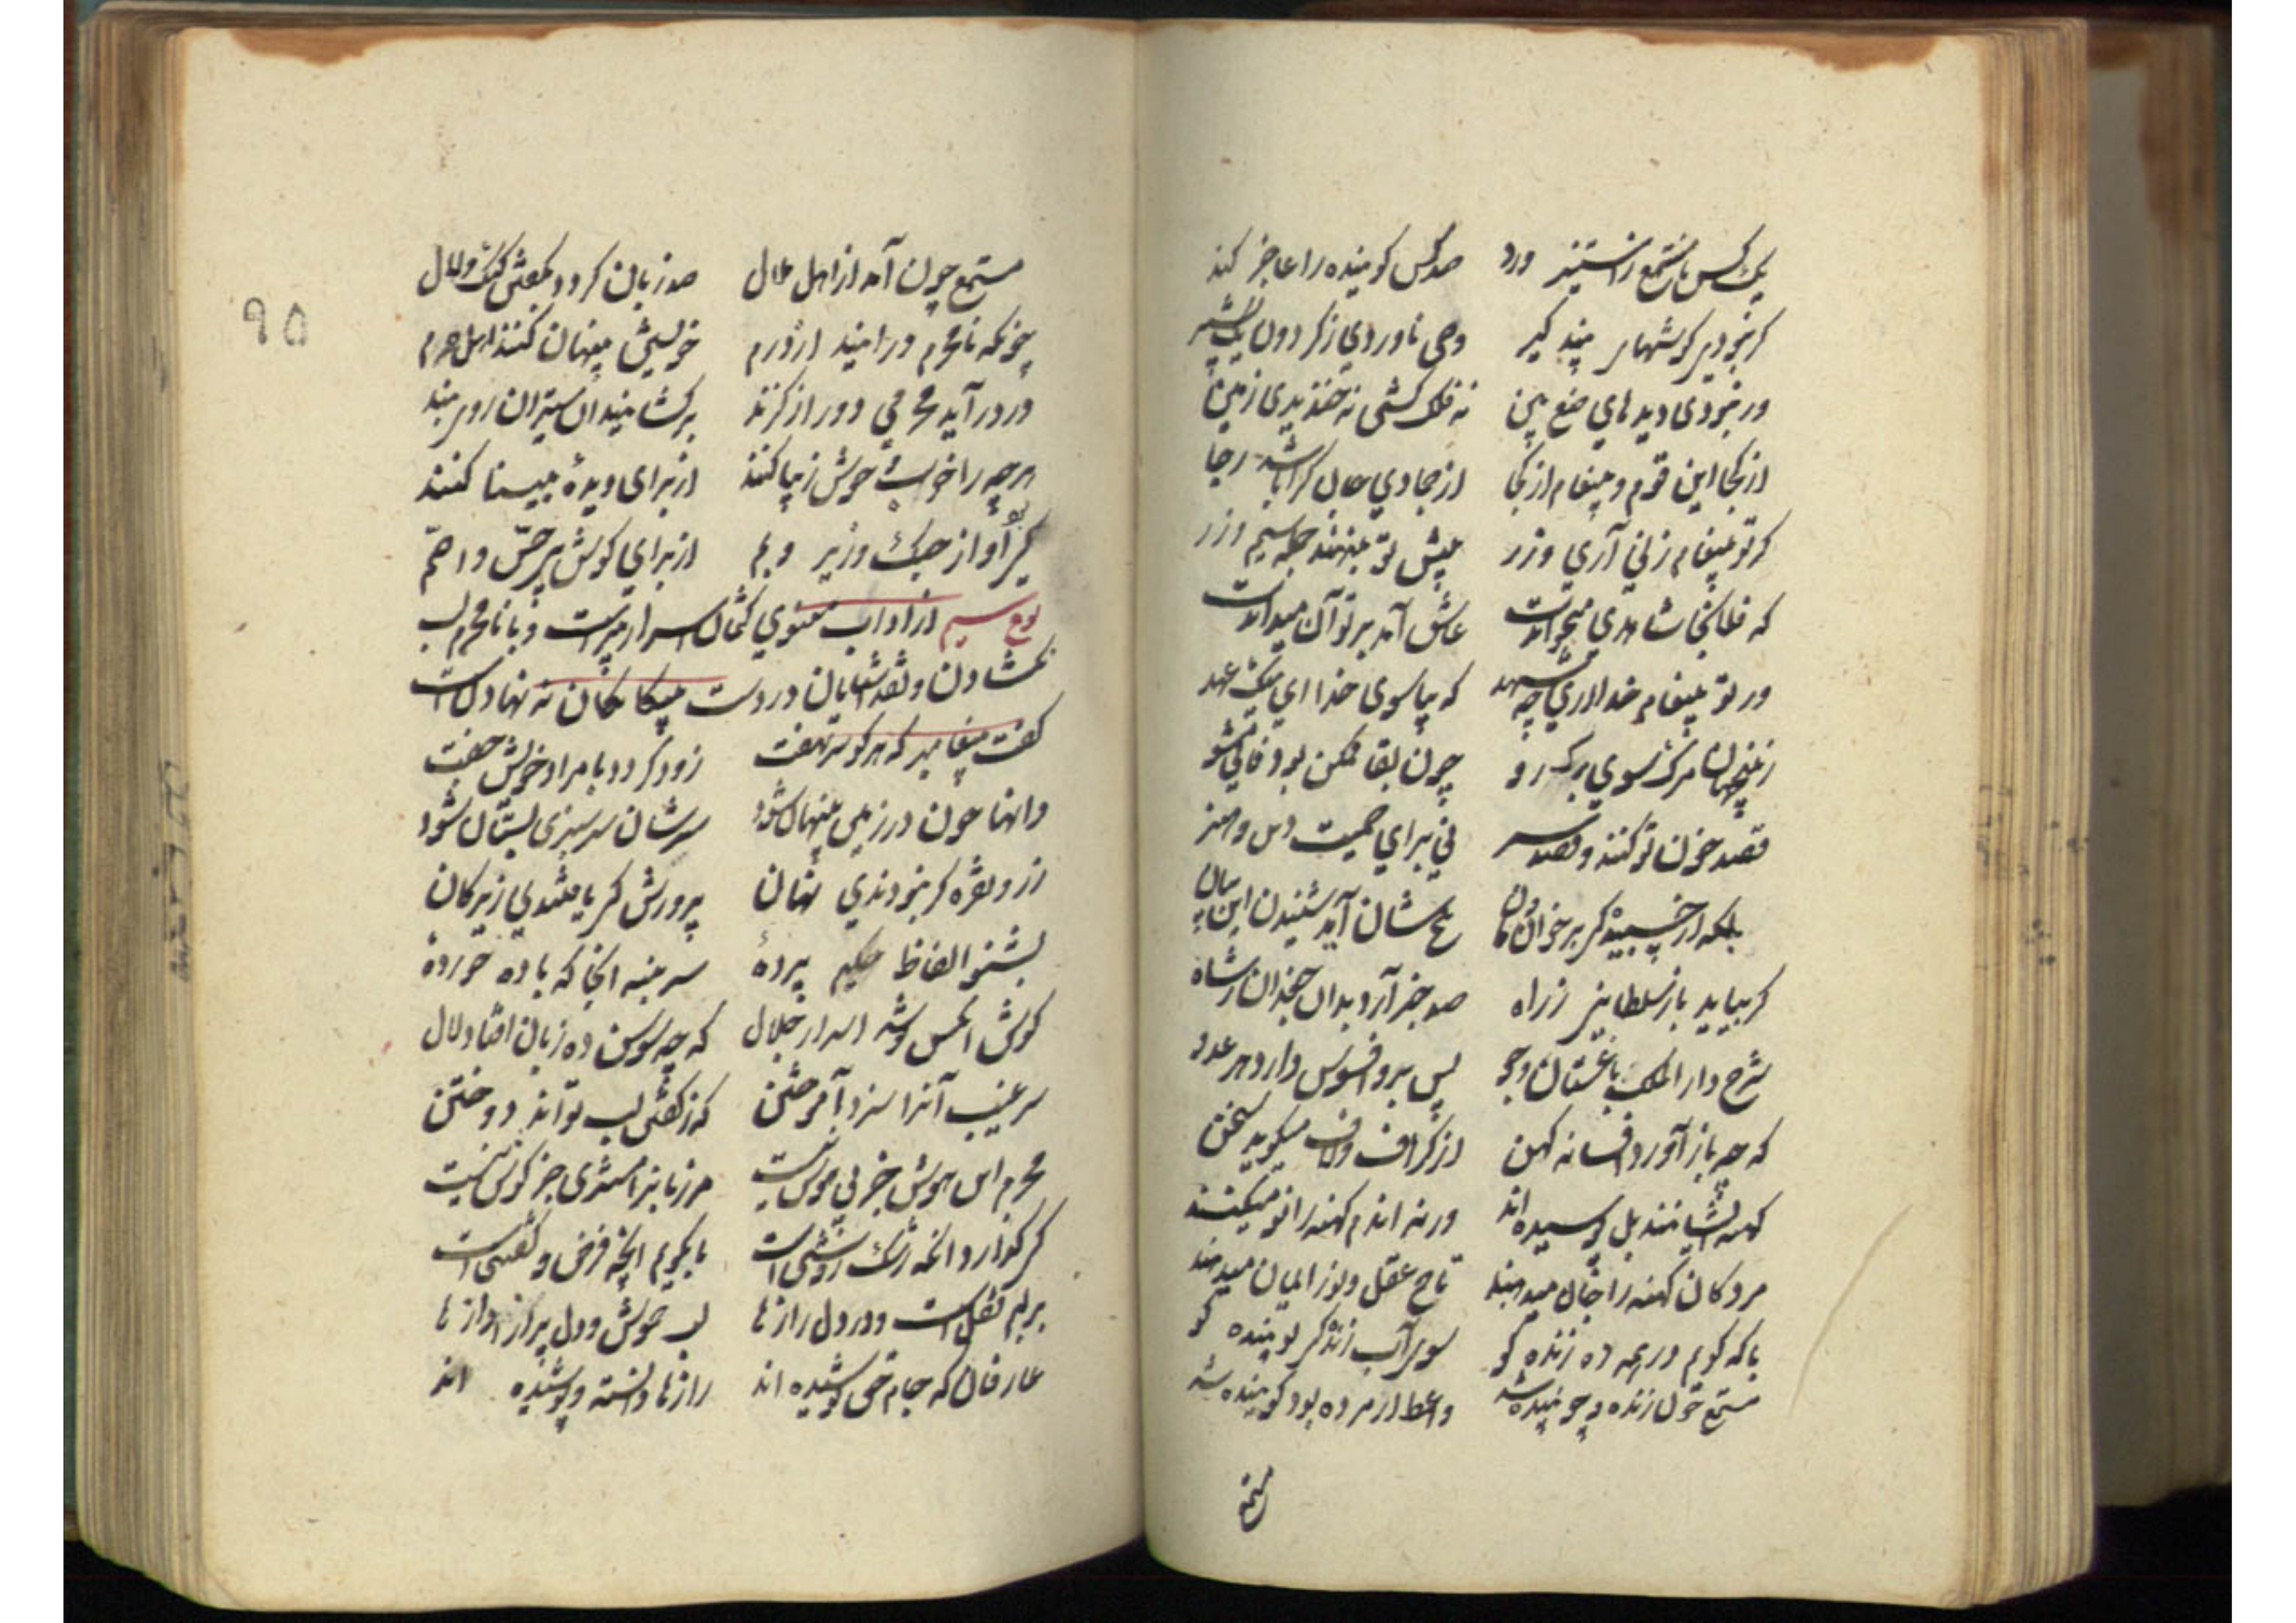 یک کس نا مستمع زاستیز ورد صد کس کوینده را عاجز کند
کر نبودی کوشهای پند کیر وحی ناوردی ز کردون یک بشیر
ور نبودی دیدهای صنع بین نه فلک کشتی نه خندیدی زمین
از کجا این قوم و پیغام از کجا از جمادی جان کرا باشد رجا
کر تو پیغام زنی آری و زر پیش تو بنهند جمله سیم و زر
که فلان جا شاهدی میخواندت عاشق آمد بر تو آن میداندت
ور تو پیغام خدا آری چو شهد که بیا سوی خدا ای نیک عهد
از جهان مرک سوی برک رو چون بقا ممکن بود فانی مشو
قصد خون تو کنند و قصد سر نی برای حمیت دین و هنر
بلکه از چسپیدکی بر خان و مان تلخ شان آید شنیدن این بیان
کر بیاید باز سلطانی ز راه صد خبر آرد بدان جغدان ز شاه
شرح دار الملک باغستان و جو پس برو افسوس دارد هر عدو
که چه باز آورد افسانه کهن از کزاف و لاف میکوید سخن
کهنه ایشانند بل پوسیده اند ورنه اندم کهنه را نو میکنند
مردکان کهنه را جان میدهند تاج عقل و نور ایمان میدهند
با که کویم در همه ده زنده کو سوی آب زندکی پوینده کو
مستمع چون زنده و جوینده شد واعظ ار مرده بود کوینده شد
مستمع
مستمع چون آمد از اهل ملال صد زبان کردد بکفتن کنک و لال
چونکه نامحرم در آیند از درم خویش پنهان کنند اهل حرم
ور در آید محرمی دور از کزند برکشایند آن ستیران روی بند
هرچه را خوب و خوش و زیبا کنند از برای دیدۀ بینا کنند
کی بود آواز چنک و زیر و بم از برای کوش بی حس و اصم
نوع سیم از آداب مثنوی کتمان اسرار میراست و با نامحرم لب
نکشادن و نقد شایان در دست بیکانکان نه نهادن است
کفت پیغامبر که هر کو سر نهفت زود کردد با مراد خویش جفت
دانها چون در زمین پنهان شود سر شان سر سبزی بستان شود
زر و نقره کر نبودندی نهان پرورش کی یافتندی زیر کان
بشنو الفاظ حکیم پردۀ سر بنه انجا که باده خوردۀ
کوش انکس نوشد اسرار جلال که چو سوسن ده زبان افتاد و لال
سر غیب آنرا سزد آموختن که ز کفتن لب تواند دوختن
محرم این هوش جز بی هوش نیست مر زبانرا مشتری جز کوش نیست
کر کذارد انکه رشک روشنی است تا بکویم انچه فرض و کفتنی است
بر لبم قفل است و در دل رازها لب خموش و دل پر از آوازها
عارفان که جام حق نوشیده اند رازها دانسته و پوشیده اند
۹۵